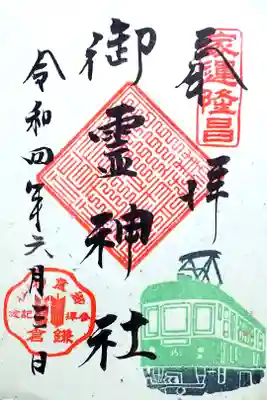 家運隆昌
奉拝
御霊神社
令和四年六月三日
鎌倉